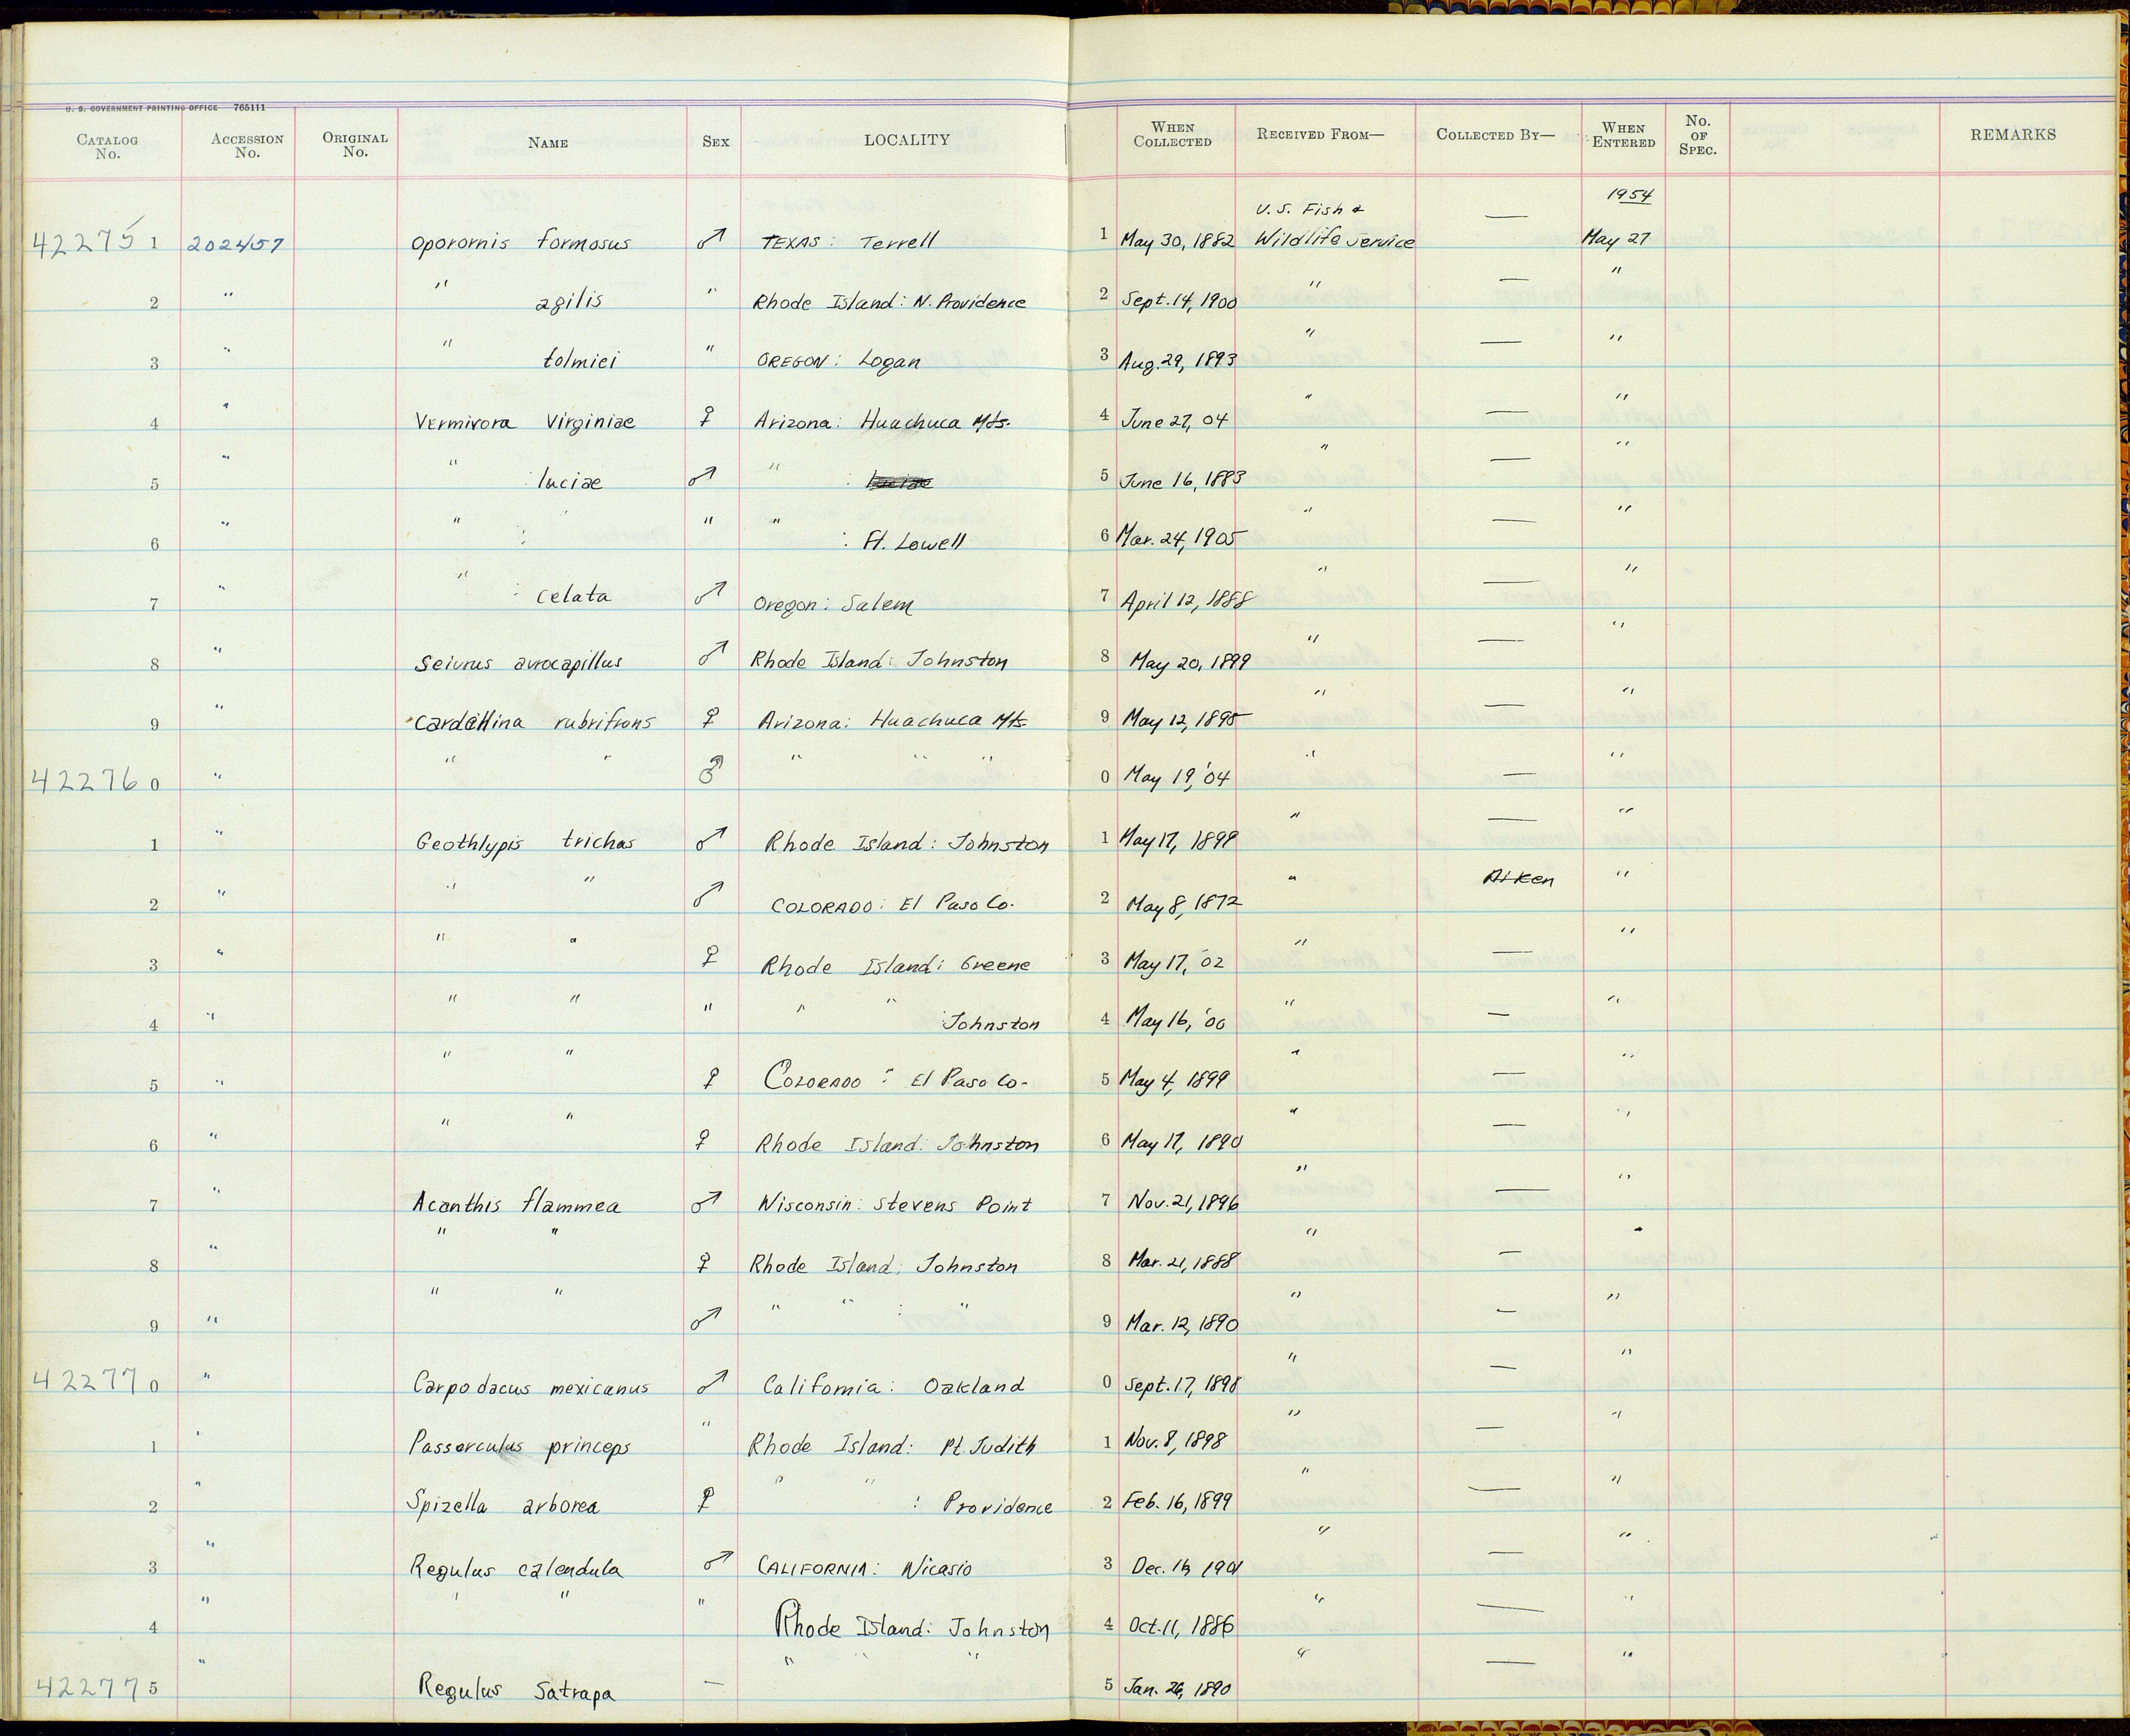 U. S. GOVERNMENT PRINTING OFFICE 765111
CATALOG No. ACCESSION No. ORIGINAL No. NAME SEX LOCALITY WHEN COLLECTED RECEIVED FROM— COLLECTED BY— WHEN ENTERED No. OF SPEC. REMARKS
1954
422751 202457 Oporornis formosus ♂ TEXAS: Terrell 1 May 30, 1882 U.S. Fish & Wildlife Service — May 27
2 " " agilis " Rhode Island: N. Providence 2 Sept. 14, 1900 " — "
3 " " tolmiei " OREGON: Logan 3 Aug. 29, 1893 " — "
4 " Vermivora Virginiae ♀ Arizona: Huachuca Mts. 4 June 27, 04 " — "
5 " " luciae ♂ " : 5 June 16, 1883 " — "
6 " " : " " : Ft. Lowell 6 Mar. 24, 1905 " — "
7 " " : celata ♂ Oregon: Salem 7 April 12, 1888 " — "
8 " Seiurus aurocapillus ♂ Rhode Island: Johnston 8 May 20, 1899 " — "
9 " Cardellina rubrifrons ♀ Arizona: Huachuca Mts. 9 May 12, 1895 " — "
422760 " " " " " " 0 May 19, '04 " — "
1 " Geothlypis trichas ♂ Rhode Island: Johnston 1 May 17, 1899 " — "
2 " " " ♂ COLORADO: El Paso Co. 2 May 8, 1872 " Aiken "
3 " " " ♀ Rhode Island: Greene 3 May 17, '02 " — "
4 " " " " " " Johnston 4 May 16, '00 " — "
5 " " " ♀ COLORADO: El Paso Co. 5 May 4, 1899 " — "
6 " " " ♀ Rhode Island: Johnston 6 May 17, 1890 " — "
7 " Acanthis flammea ♂ Wisconsin: Stevens Point 7 Nov. 21, 1896 " — "
8 " " " ♀ Rhode Island: Johnston 8 Mar. 21, 1888 " — "
9 " " " ♂ " " : " 9 Mar. 12, 1890 " — "
422770 " Carpodacus mexicanus ♂ California: Oakland 0 Sept. 17, 1898 " — "
1 " Passerculus princeps " Rhode Island: Pt. Judith 1 Nov. 8, 1898 " — "
2 " Spizella arborea ♀ " " : Providence 2 Feb. 16, 1899 " — "
3 " Regulus calendula ♂ CALIFORNIA: Nicasio 3 Dec. " — "
4 " " " " Rhode Island: Johnston 4 Oct. 11, 1886 " — "
422775 " Regulus Satrapa — " " " 5 Jan. 26, 1890 " — "